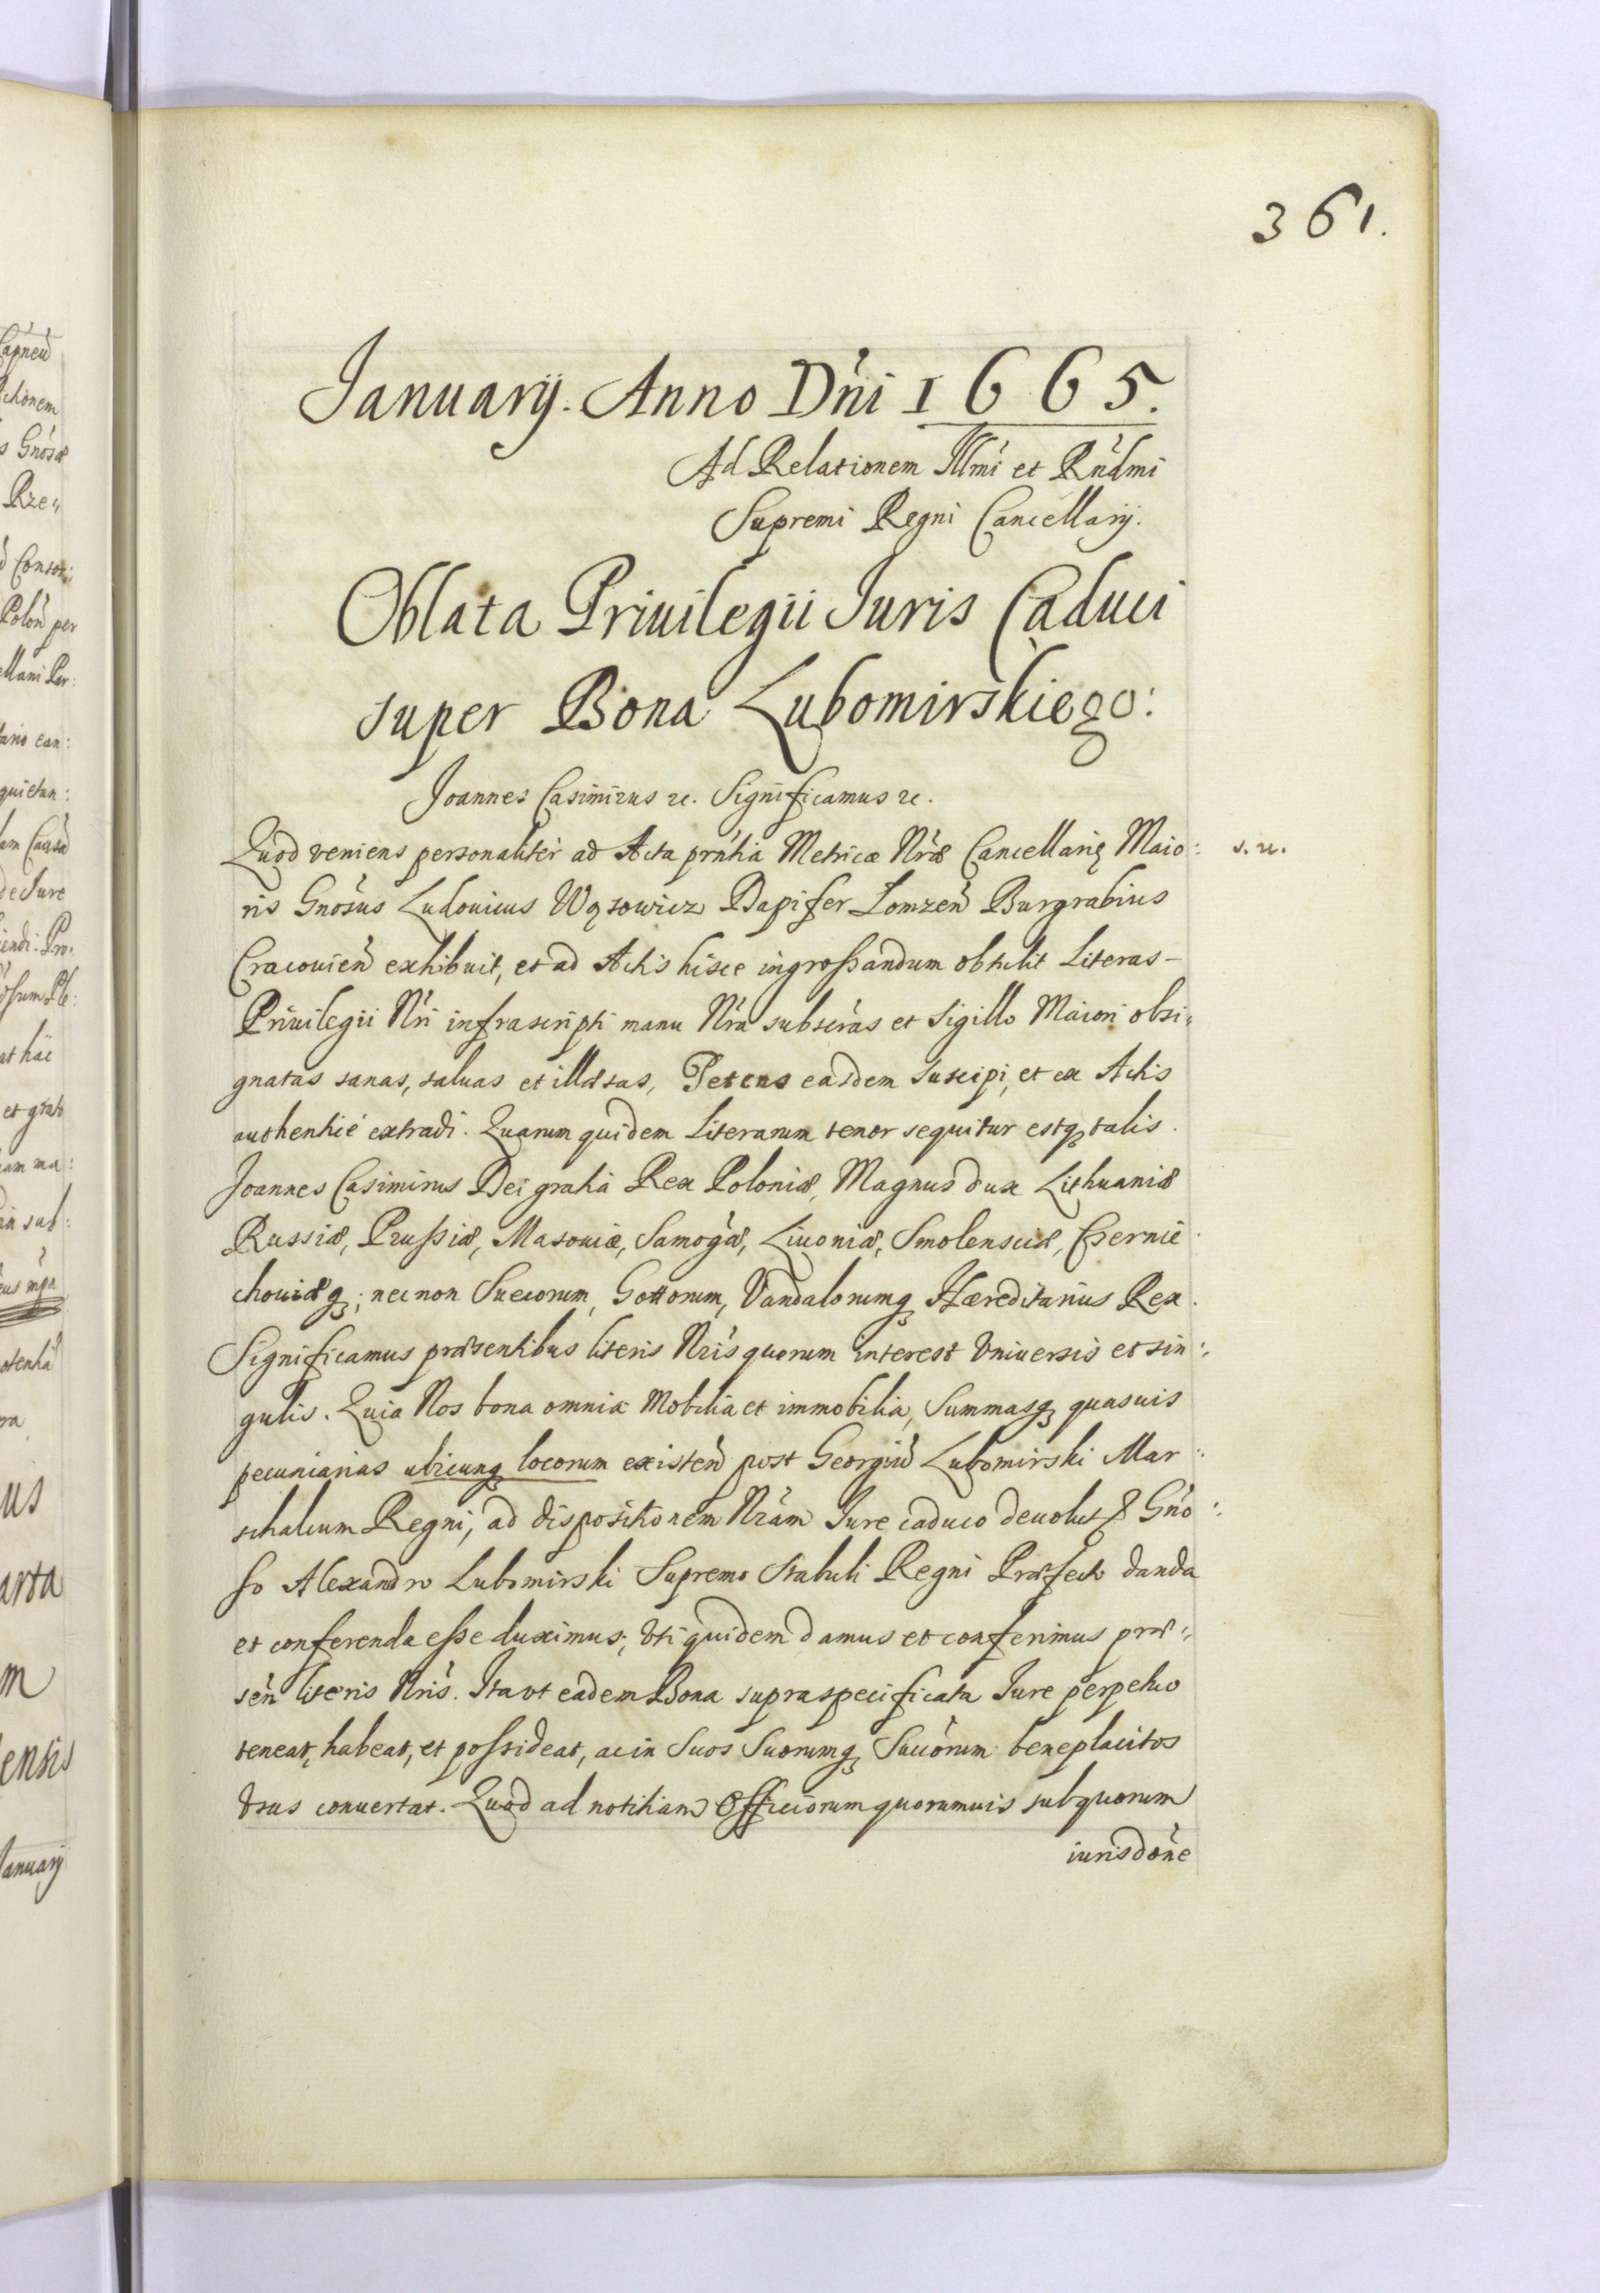 361.
Ianuarij. Anno Dńi 1665.
Ad Relationem Illmi et Rńdmi
Supremi Regni Cancellarij.
Oblata Priuilegii Iuris Caduci
super Bona Lubomirskiego:
Joannes Casimirus rc. Significamus rc.
Quod veniens personaliter ad Acta prńtia Metricæ Nræ Cancellarię Maio: s. rc.
ris Gnosus Ludouicus Wąsowicz Dapifer Lomzen̄ Burgrabius
Cracouien̄ exhibuit, et ad Actis hisce ingrossandum obtulit Literas-
Priuilegii Nri infrascripti manu Nra subscras et Sigillo Maiori obsi:
gnatas sanas, saluas et illæsas, Petens easdem suscipi, et ex Actis
authentice extradi. Quarum quidem Literarum tenor sequitur estq talis.
Joannes Casimirus Dei gratia Rex Poloniæ, Magnus dux Lithuaniæ
Russiæ, Prussiæ, Masouiæ, Samogæ, Liuoniæ, Smolensciæ, Czernie
chouiæq; nec non Suecorum, Gottorum, Vandalorumq Hæreditarius Rex.
Significamus præsentibus literis Nris quorum interest Vniuersis et sin:
gulis. Quia Nos bona omnia Mobilia et immobilia, Summasq quasuis
pecuniarias ubicunq locorum existen̄ post Georgiū Lubomirski Mar:
schalcum Regni, ad dispositionem Nram Iure caduco deuolut & Gno:
so Alexandro Lubomirski Supremo Stabuli Regni Præfecto danda
et conferenda esse duximus; Vti quidem damus et conferimus præ:
sen̄ literis Nris. Ita vt eadem Bona supraspecificata Iure perpetuo
teneat, habeat, et possideat, ac in Suos Suorumq Succorum beneplacitos
Vsus conuertat. Quod ad notitiam Officiorum quorumuis sub quorum
iurisdone